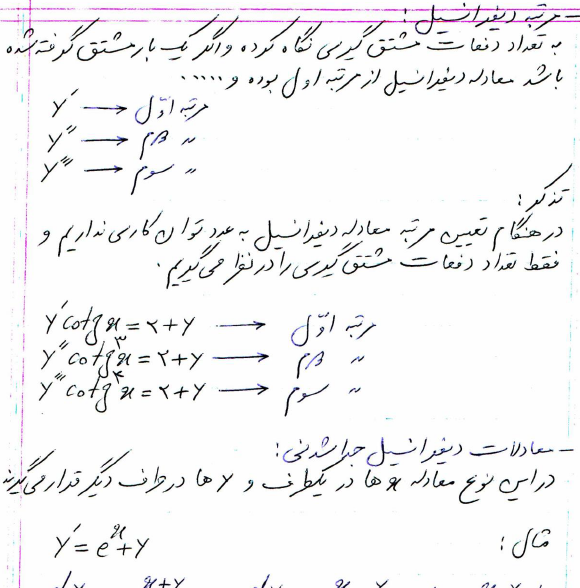 - مرتبه دیفرانسیل :
به تعداد دفعات مشتق گیری نگاه کرده و اگر یک بار مشتق گرفته شده
باشد معادله دیفرانسیل از مرتبه اول بوده و .....
y′ → مرتبه اوّل
y″ → " دوم
y‴ → " سوم
تذکر :
در هنگام تعیین مرتبه معادله دیفرانسیل به عدد توان کاری نداریم و
فقط تعداد دفعات مشتق گیری را در نظر می گیریم .
y′ cotg x = ۲+y → مرتبه اوّل
y″ cotg³ x = ۲+y → " دوم
y‴ cotg x = ۲+y → " سوم
- معادلات دیفرانسیل جدا شدنی :
در این نوع معادله x ها در یکطرف و y ها در طرف دیگر قرار می گیرند
مثال :
y′ = eˣ+y